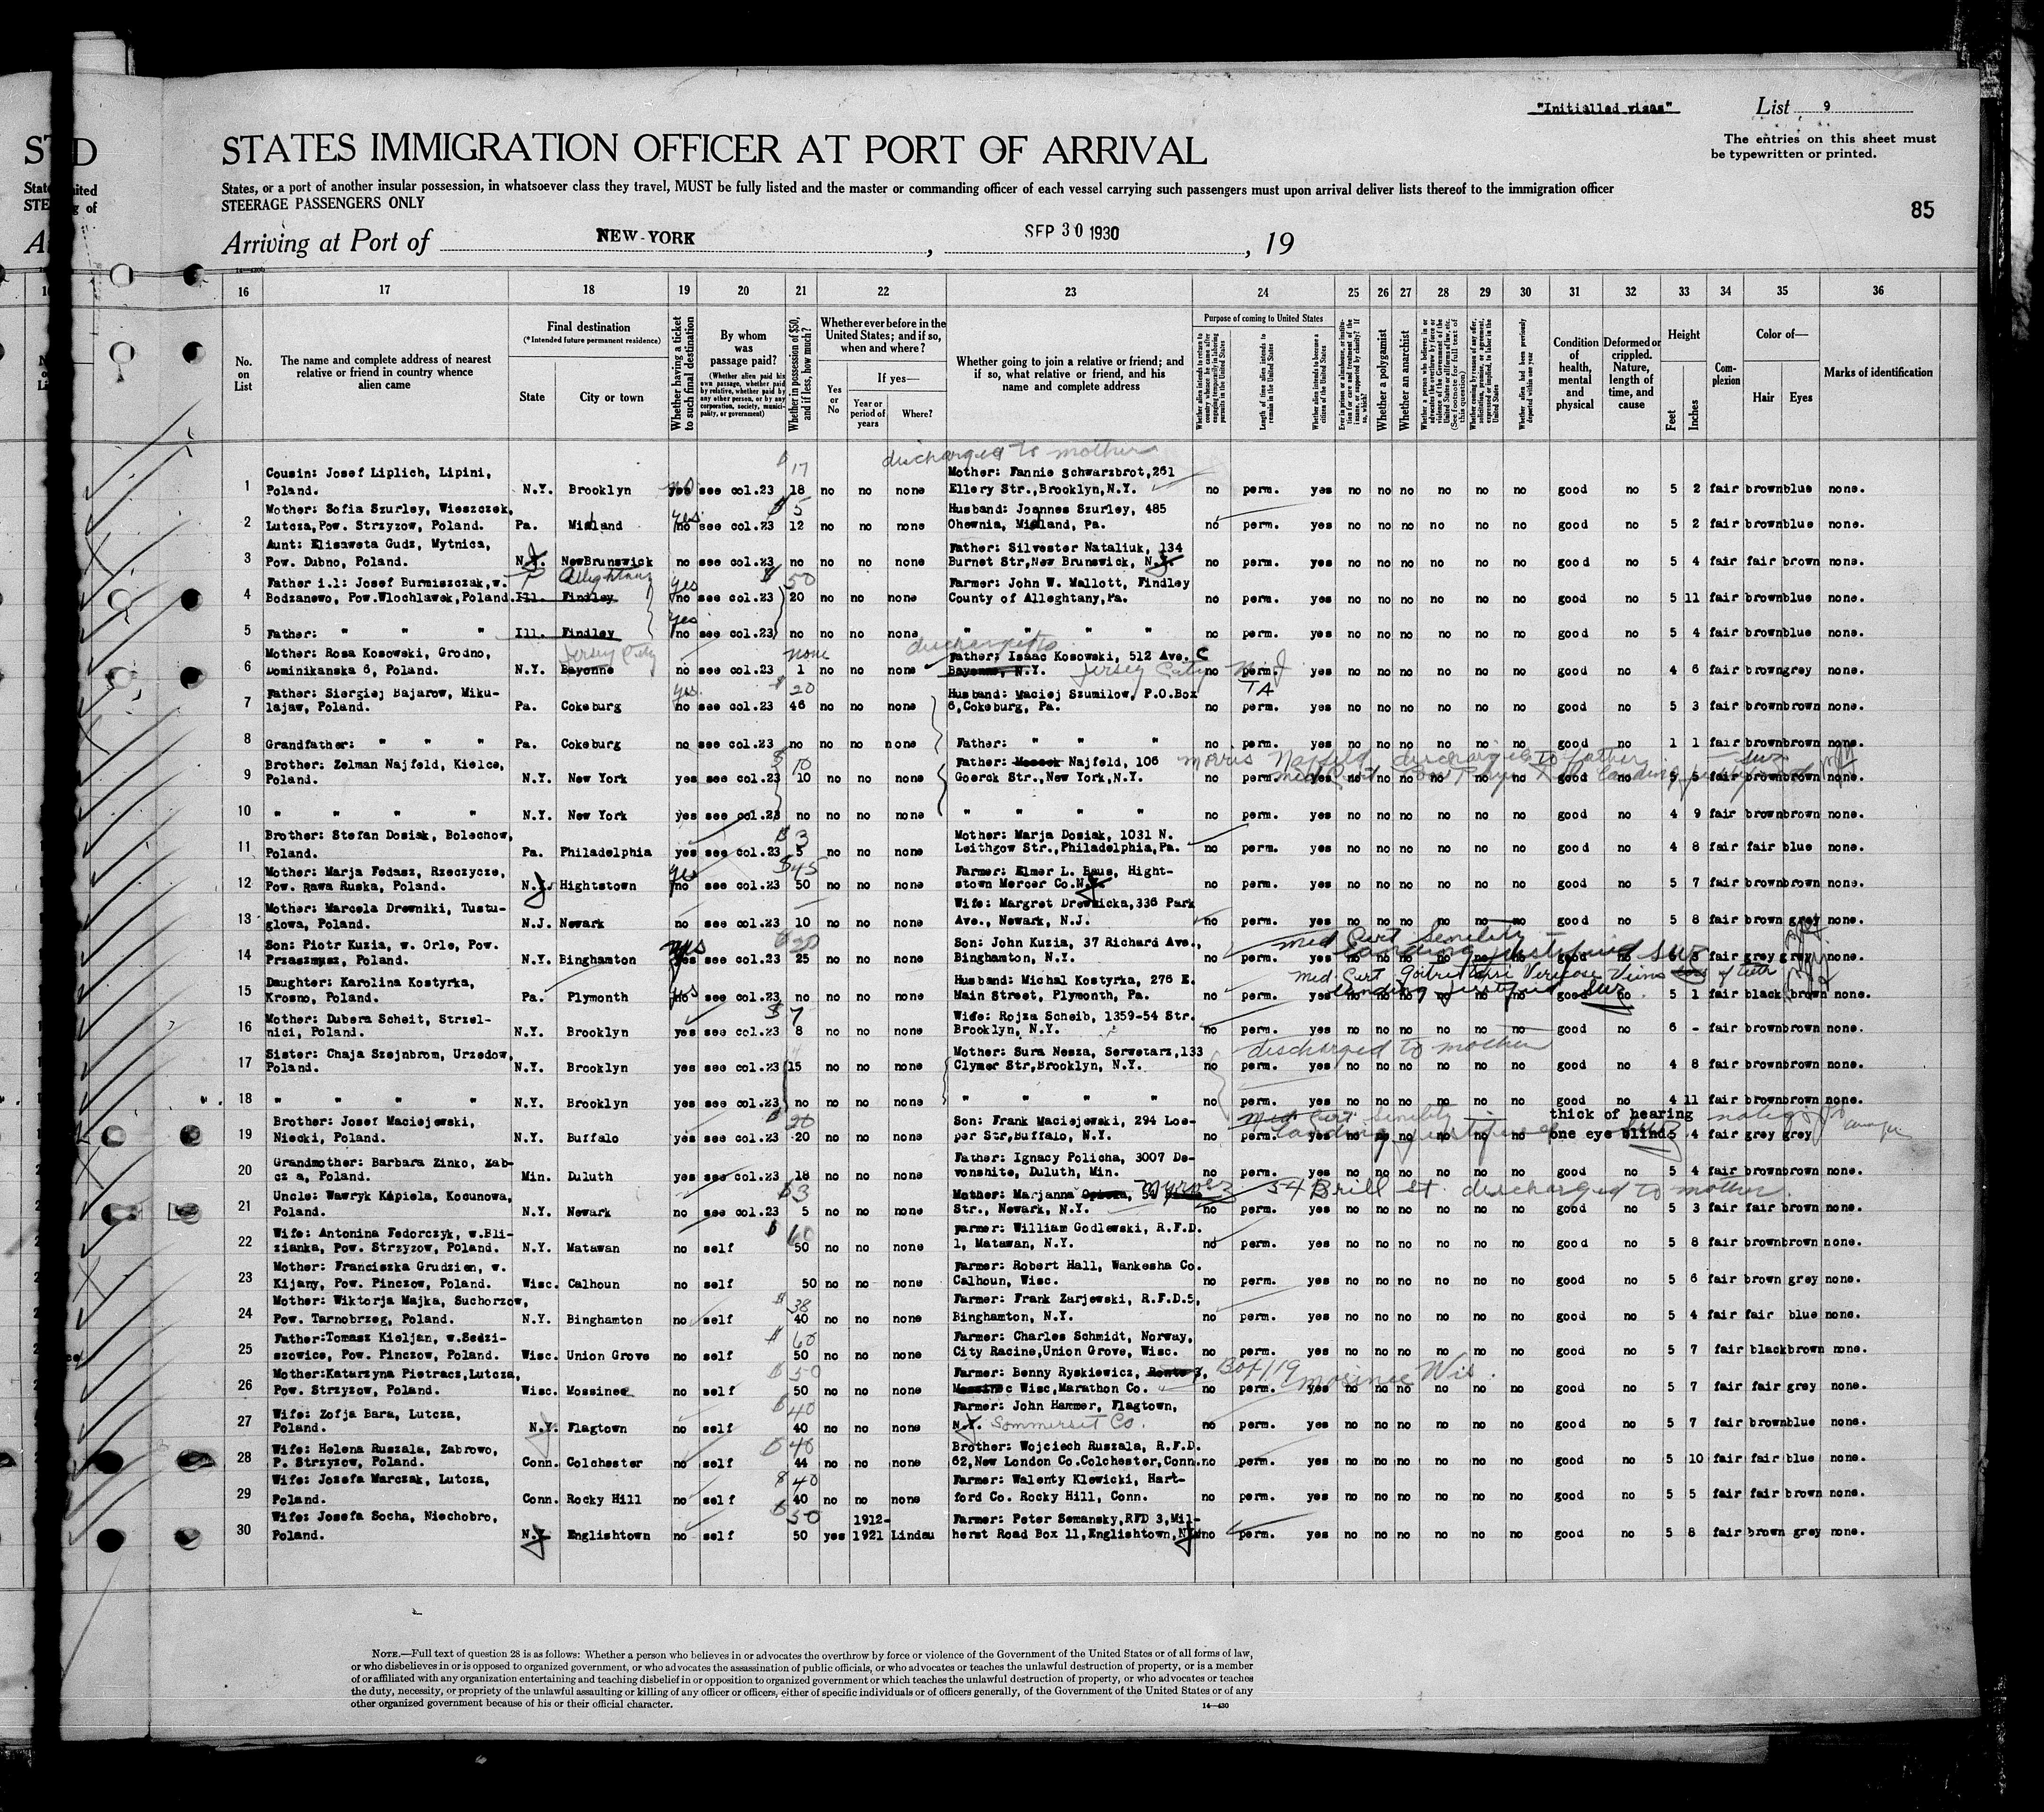 "Initialled visas"
List 9
The entries on this sheet must
be typewritten or printed.
STATES IMMIGRATION OFFICER AT PORT OF ARRIVAL
States, or a port of another insular possession, in whatsoever class they travel, MUST be fully listed and the master or commanding officer of each vessel carrying such passengers must upon arrival deliver lists thereof to the immigration officer
STEERAGE PASSENGERS ONLY
85
Arriving at Port of NEW-YORK, SEP 30 1930, 19
16 17 18 19 20 21 22 23 24 25 26 27 28 29 30 31 32 33 34 35 36
No. on List
The name and complete address of nearest relative or friend in country whence alien came
Final destination
(*Intended future permanent residence)
State
City or town
Whether having a ticket to such final destination
By whom was passage paid?
(Whether alien paid his own passage, whether paid by relative, whether paid by any other person, or by any corporation, society, municipality, or government)
Whether in possession of $50, and if less, how much?
Whether ever before in the United States; and if so, when and where?
Yes or No
If yes—
Year or period of years
Where?
Whether going to join a relative or friend; and if so, what relative or friend, and his name and complete address
Purpose of coming to United States
Length of time alien intends to remain in the United States
Whether alien intends to become a citizen of the United States
Whether a polygamist
Whether an anarchist
Condition of health, mental and physical
Deformed or crippled. Nature, length of time, and cause
Height
Feet
Inches
Complexion
Color of—
Hair
Eyes
Marks of identification
discharged to mother
17
Cousin: Josef Liplich, Lipini, Mother: Fannie Schwarzbrot,261
1 Poland. N.Y. Brooklyn yes see col.23 18 no no none Ellery Str.,Brooklyn,N.Y. no perm. yes no no no no no no good no 5 2 fair brown blue none.
Mother: Sofia Szurley, Wieszczek, yes $5 Husband: Joannes Szurley, 485
2 Lutcza,Pow. Strzyzow, Poland. Pa. Midland no see col.23 12 no no none Ohewnia, Midland, Pa. no perm. yes no no no no no no good no 5 2 fair brown blue none.
Aunt: Elisaweta Gudz, Mytnica, Father: Silvester Nataliuk, 134
3 Pow. Dubno, Poland. N.J. NewBrunswick no see col.23 no no no none Burnet Str,New Brunswick, N.J. no perm. yes no no no no no no good no 5 4 fair fair brown none.
Father i.l: Josef Burmiszczak,w. P Alleghtany yes $50 Farmer: John W. Mallott, Findley
4 Bodzanewo, Pow.Wlochlawek,Poland. Ill. Findley no see col.23 20 no no none County of Alleghtany,Pa. no perm. yes no no no no no no good no 5 11 fair brown blue none.
yes
5 Father: " " " Ill. Findley no see col.23 no no no none " " " " no perm. yes no no no no no no good no 5 4 fair brown blue none.
Mother: Rosa Kosowski, Grodno, Jersey City none discharged to Father: Isaac Kosowski, 512 Ave. C
6 Dominikanska 6, Poland. N.Y. Bayonne no see col.23 1 no no none Bayonne, N.Y. Jersey City N.J no perm. yes no no no no no no good no 4 6 fair brown grey none.
Father: Siergiej Bajarow, Miku- yes $20 Husband: Maciej Szumilow, P.O.Box TA
7 lajaw, Poland. Pa. Cokeburg no see col.23 46 no no none 6,Cokeburg, Pa. no perm. yes no no no no no no good no 5 3 fair brown brown none.
8 Grandfather: " " " Pa. Cokeburg no see col.23 no no no none Father: " " " no perm. yes no no no no no no good no 1 1 fair brown brown none.
Brother: Zelman Najfeld, Kielce, $10 Father: Najfeld, 106 Morris Najfeld discharged to father
9 Poland. N.Y. New York yes see col.23 10 no no none Goerck Str.,New York,N.Y. no perm. yes no no no no no no good no 5 5 fair brown brown none.
10 " " " " N.Y. New York yes see col.23 no no no none " " " " no perm. yes no no no no no no good no 4 9 fair brown brown none.
Brother: Stefan Dosiak, Bolechow, $3 Mother: Marja Dosiak, 1031 N.
11 Poland. Pa. Philadelphia yes see col.23 5 no no none Leithgow Str.,Philadelphia,Pa. no perm. yes no no no no no no good no 4 8 fair fair blue none.
Mother: Marja Fedasz, Rzeczyce, yes $45 Farmer: Elmer L. Baus, Hight-
12 Pow. Rawa Ruska, Poland. N.J. Hightstown no see col.23 50 no no none stown Mercer Co.N.J. no perm. yes no no no no no no good no 5 7 fair brown brown none.
Mother: Marcela Drewniki, Tustu- Wife: Margret Drewnicka,336 Park
13 glowa, Poland. N.J. Newark no see col.23 10 no no none Ave., Newark, N.J. no perm. yes no no no no no no good no 5 8 fair brown grey none.
Son: Piotr Kuzia, w. Orle, Pow. yes $20 Son: John Kuzia, 37 Richard Ave., Med Cert Senility
14 Przaszmysz, Poland. N.Y. Binghamton yes see col.23 25 no no none Binghamton, N.Y. no perm. yes no no no no no no good no fair grey grey none.
Daughter: Karolina Kostyrka, yes Husband: Michal Kostyrka, 276 E. Med Cert Goitre
15 Krosno, Poland. Pa. Plymonth no see col.23 no no no none Main Street, Plymonth, Pa. no perm. yes no no no no no no good no 5 1 fair black brown none.
Mother: Dubera Scheit, Strzel- $7 Wife: Rojza Scheib, 1359-54 Str.
16 nici, Poland. N.Y. Brooklyn yes see col.23 8 no no none Brooklyn, N.Y. no perm. yes no no no no no no good no 6 - fair brown brown none.
Sister: Chaja Szejnbrom, Urzedow, Mother: Sura Nesza, Serwetarz,133 discharged to mother
17 Poland. N.Y. Brooklyn yes see col.23 15 no no none Clymer Str,Brooklyn, N.Y. no perm. yes no no no no no no good no 4 8 fair brown brown none.
18 " " " " N.Y. Brooklyn yes see col.23 no no no none " " " " no perm. yes no no no no no no good no 4 11 fair brown brown none.
Brother: Josef Maciejewski, $20 Son: Frank Maciejewski, 294 Loe- Med Cert Senility thick of hearing
19 Niecki, Poland. N.Y. Buffalo yes see col.23 20 no no none per Str,Buffalo, N.Y. no perm. yes no no no no no no one eye blind 5 4 fair grey grey
Grandmother: Barbara Zinko, Zab- Father: Ignacy Policha, 3007 De-
20 cz a, Poland. Min. Duluth yes see col.23 18 no no none vonshite, Duluth, Min. no perm. yes no no no no no no good no 5 4 fair brown brown none.
Uncle: Wawryk Kapiela, Kocunowa, $3 Mother: Marjanna 54 Brill St discharged to mother.
21 Poland. N.Y. Newark no see col.23 5 no no none Str., Newark, N.Y. no perm. yes no no no no no no good no 5 3 fair fair brown none.
Wife: Antonina Fedorczyk, w.Bli- $60 Farmer: William Godlewski, R.F.D.
22 zianka, Pow. Strzyzow, Poland. N.Y. Matawan no self 50 no no none 1, Matawan, N.Y. no perm. yes no no no no no no good no 5 8 fair brown brown none.
Mother: Franciszka Grudzien, w. Farmer: Robert Hall, Wankesha Co.
23 Kijany, Pow. Pinczow, Poland. Wisc. Calhoun no self 50 no no none Calhoun, Wisc. no perm. yes no no no no no no good no 5 6 fair brown grey none.
Mother: Wiktorja Majka, Suchorzow, $38 Farmer: Frank Zarjewski, R.F.D.5,
24 Pow. Tarnobrzeg, Poland. N.Y. Binghamton no self 40 no no none Binghamton, N.Y. no perm. yes no no no no no no good no 5 4 fair fair blue none.
Father:Tomasz Kieljan, w.Sedzi- $60 Farmer: Charles Schmidt, Norway,
25 szowice, Pow. Pinczow, Poland. Wisc. Union Grove no self 50 no no none City Racine,Union Grove, Wisc. no perm. yes no no no no no no good no 5 7 fair black brown none.
Mother:Katarzyna Pietracz,Lutcza, $50 Farmer: Benny Ryskiewicz, Route 3, Box 119
26 Pow. Strzyzow, Poland. Wisc. Mossinee no self 50 no no none Wisc,Marathon Co. Mosinee Wis. no perm. yes no no no no no no good no 5 7 fair fair grey none.
Wife: Zofja Bara, Lutcza, $40 Farmer: John Hammer, Flagtown,
27 Poland. N.Y. Flagtown no self 40 no no none N.Y. Sommerset Co. no perm. yes no no no no no no good no 5 7 fair brown blue none.
Wife: Helena Ruszala, Zabrowo, $40 Brother: Wojciech Ruszala, R.F.D.
28 P. Strzyzow, Poland. Conn. Colchester no self 44 no no none 62,New London Co.Colchester,Conn. no perm. yes no no no no no no good no 5 10 fair fair blue none.
Wife: Jozefa Marczak, Lutcza, $40 Farmer: Walenty Klewicki, Hart-
29 Poland. Conn. Rocky Hill no self 40 no no none ford Co. Rocky Hill, Conn. no perm. yes no no no no no no good no 5 5 fair fair brown none.
Wife: Josefa Socha, Niechobro, $50 1912- Farmer: Peter Semansky,RFD 3,Mil-
30 Poland. N.J. Englishtown no self 50 yes 1921 Lindau herst Road Box 11,Englishtown,N.J. no perm. yes no no no no no no good no 5 8 fair brown grey none.
NOTE.—Full text of question 28 is as follows: Whether a person who believes in or advocates the overthrow by force or violence of the Government of the United States or of all forms of law,
or who disbelieves in or is opposed to organized government, or who advocates the assassination of public officials, or who advocates or teaches the unlawful destruction of property, or is a member
of or affiliated with any organization entertaining and teaching disbelief in or opposition to organized government or which teaches the unlawful destruction of property, or who advocates or teaches
the duty, necessity, or propriety of the unlawful assaulting or killing of any officer or officers, either of specific individuals or of officers generally, of the Government of the United States or of any
other organized government because of his or their official character.
14—430